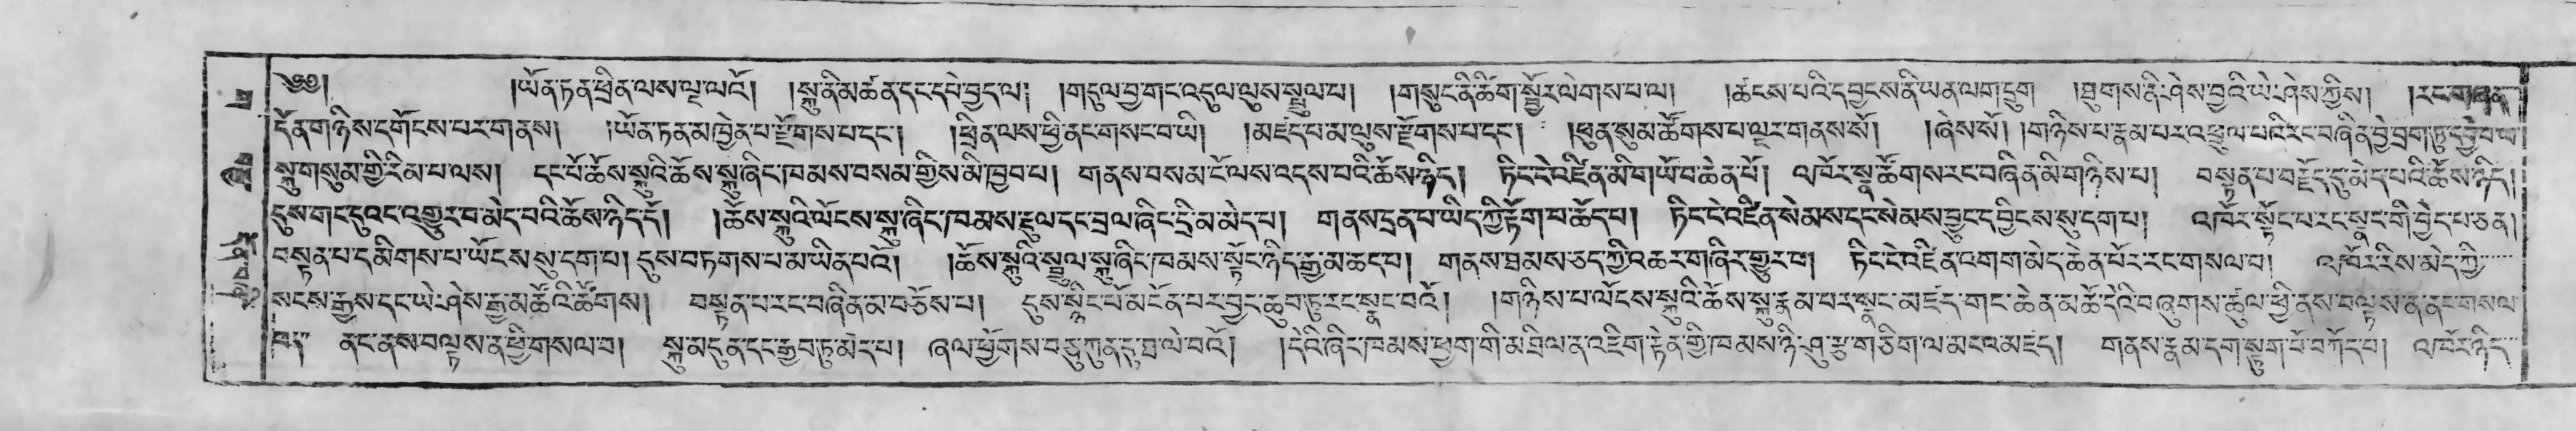 ༄༅། །ཡོན་ཏན་ཕྲིན་ལས་ལྔ་ལའོ། །སྐུ་ནི་མཚན་དང་དཔེ་བྱད་ལ། །གདུལ་བྱ་གང་འདུལ་ལུས་སྤྲུལ་པ། །གསུང་ནི་ཚིག་སྦྱོར་ལེགས་པ་ལ། །ཚངས་པའི་དབྱངས་ནི་ཡན་ལག་དྲུག །ཐུགས་ནི་ཤེས་བྱའི་ཡེ་ཤེས་ཀྱིས། །རང་གཞན་
དོན་གཉིས་དགོངས་པར་གནས། །ཡོན་ཏན་མཁྱེན་པ་རྫོགས་པ་དང་། །ཕྲིན་ལས་ཕྱི་ནང་གསང་བ་ཡི། །མཛད་པ་མ་ལུས་རྫོགས་པ་དང་། །ཕུན་སུམ་ཚོགས་པ་ལྔར་གནས་སོ། །ཞེས་སོ། །གཉིས་པ་རྣམ་པར་འཕྲུལ་པའི་རང་བཞིན་བྱེ་བྲག་ཏུ་དབྱེ་བ་ལ།
སྐུ་གསུམ་གྱི་རིམ་པ་ལས། དང་པོ་ཆོས་སྐུའི་ཆོས་སྐུ་ཞིང་ཁམས་བསམ་གྱིས་མི་ཁྱབ་པ། གནས་བསམ་ངོ་ལས་འདས་པའི་ཆོས་ཉིད། ཏིང་ངེ་འཛིན་མི་གཡོ་བ་ཆེན་པོ། འཁོར་སྣ་ཚོགས་རང་བཞིན་མི་གཉིས་པ། བསྟན་པ་བརྗོད་དུ་མེད་པའི་ཆོས་ཉིད།
དུས་གང་དུའང་འགྱུར་བ་མེད་པའི་ཆོས་ཉིད་དོ། །ཆོས་སྐུའི་ལོངས་སྐུ་ཞིང་ཁམས་རྡུལ་དང་བྲལ་ཞིང་དྲི་མ་མེད་པ། གནས་དྲན་པ་ཡིད་ཀྱི་རྟོག་པ་ཆོད་པ། ཏིང་ངེ་འཛིན་སེམས་དང་སེམས་བྱུང་དབྱིངས་སུ་དག་པ། འཁོར་སྟོང་པ་རང་སྣང་གི་བྱེད་པ་ཅན།
བསྟན་པ་དམིགས་པ་ཡོངས་སུ་དག་པ། དུས་བཏགས་པ་མ་ཡིན་པའོ། །ཆོས་སྐུའི་སྤྲུལ་སྐུ་ཞིང་ཁམས་སྟོང་ཉིད་རྒྱ་མ་ཆད་པ། གནས་ཐམས་ཅད་ཀྱི་འཆར་གཞིར་གྱུར་པ། ཏིང་ངེ་འཛིན་འགག་མེད་ཆེན་པོར་རང་གསལ་བ། འཁོར་རིས་མེད་ཀྱི
སངས་རྒྱས་དང་ཡེ་ཤེས་རྒྱ་མཚོའི་ཚོགས། བསྟན་པ་རང་བཞིན་མ་བཅོས་པ། དུས་སྙིང་པོ་མངོན་པར་བྱང་ཆུབ་ཏུ་རང་སྣང་བའོ། །གཉིས་པ་ལོངས་སྐུའི་ཆོས་སྐུ་རྣམ་པར་སྣང་མཛད་གང་ཆེན་མཚོ་དེའི་བཞུགས་ཚུལ་ཕྱི་ནས་བལྟས་ན་ནང་གསལ་
བ། ནང་ནས་བལྟས་ན་ཕྱི་གསལ་བ། སྐུ་མདུན་དང་རྒྱབ་ཏུ་མེད་པ། ཞལ་ཕྱོགས་བཅུ་ཀུན་དུ་ཁྲ་ལེ་བའོ། །དེའི་ཞིང་ཁམས་ཕྱག་གི་མཐིལ་ན་འཇིག་རྟེན་གྱི་ཁམས་ཉི་ཤུ་རྩ་གཅིག་ལ་མངའ་མཛད། གནས་རྣམ་དག་སྟུག་པོ་བཀོད་པ། འཁོར་ཉིད